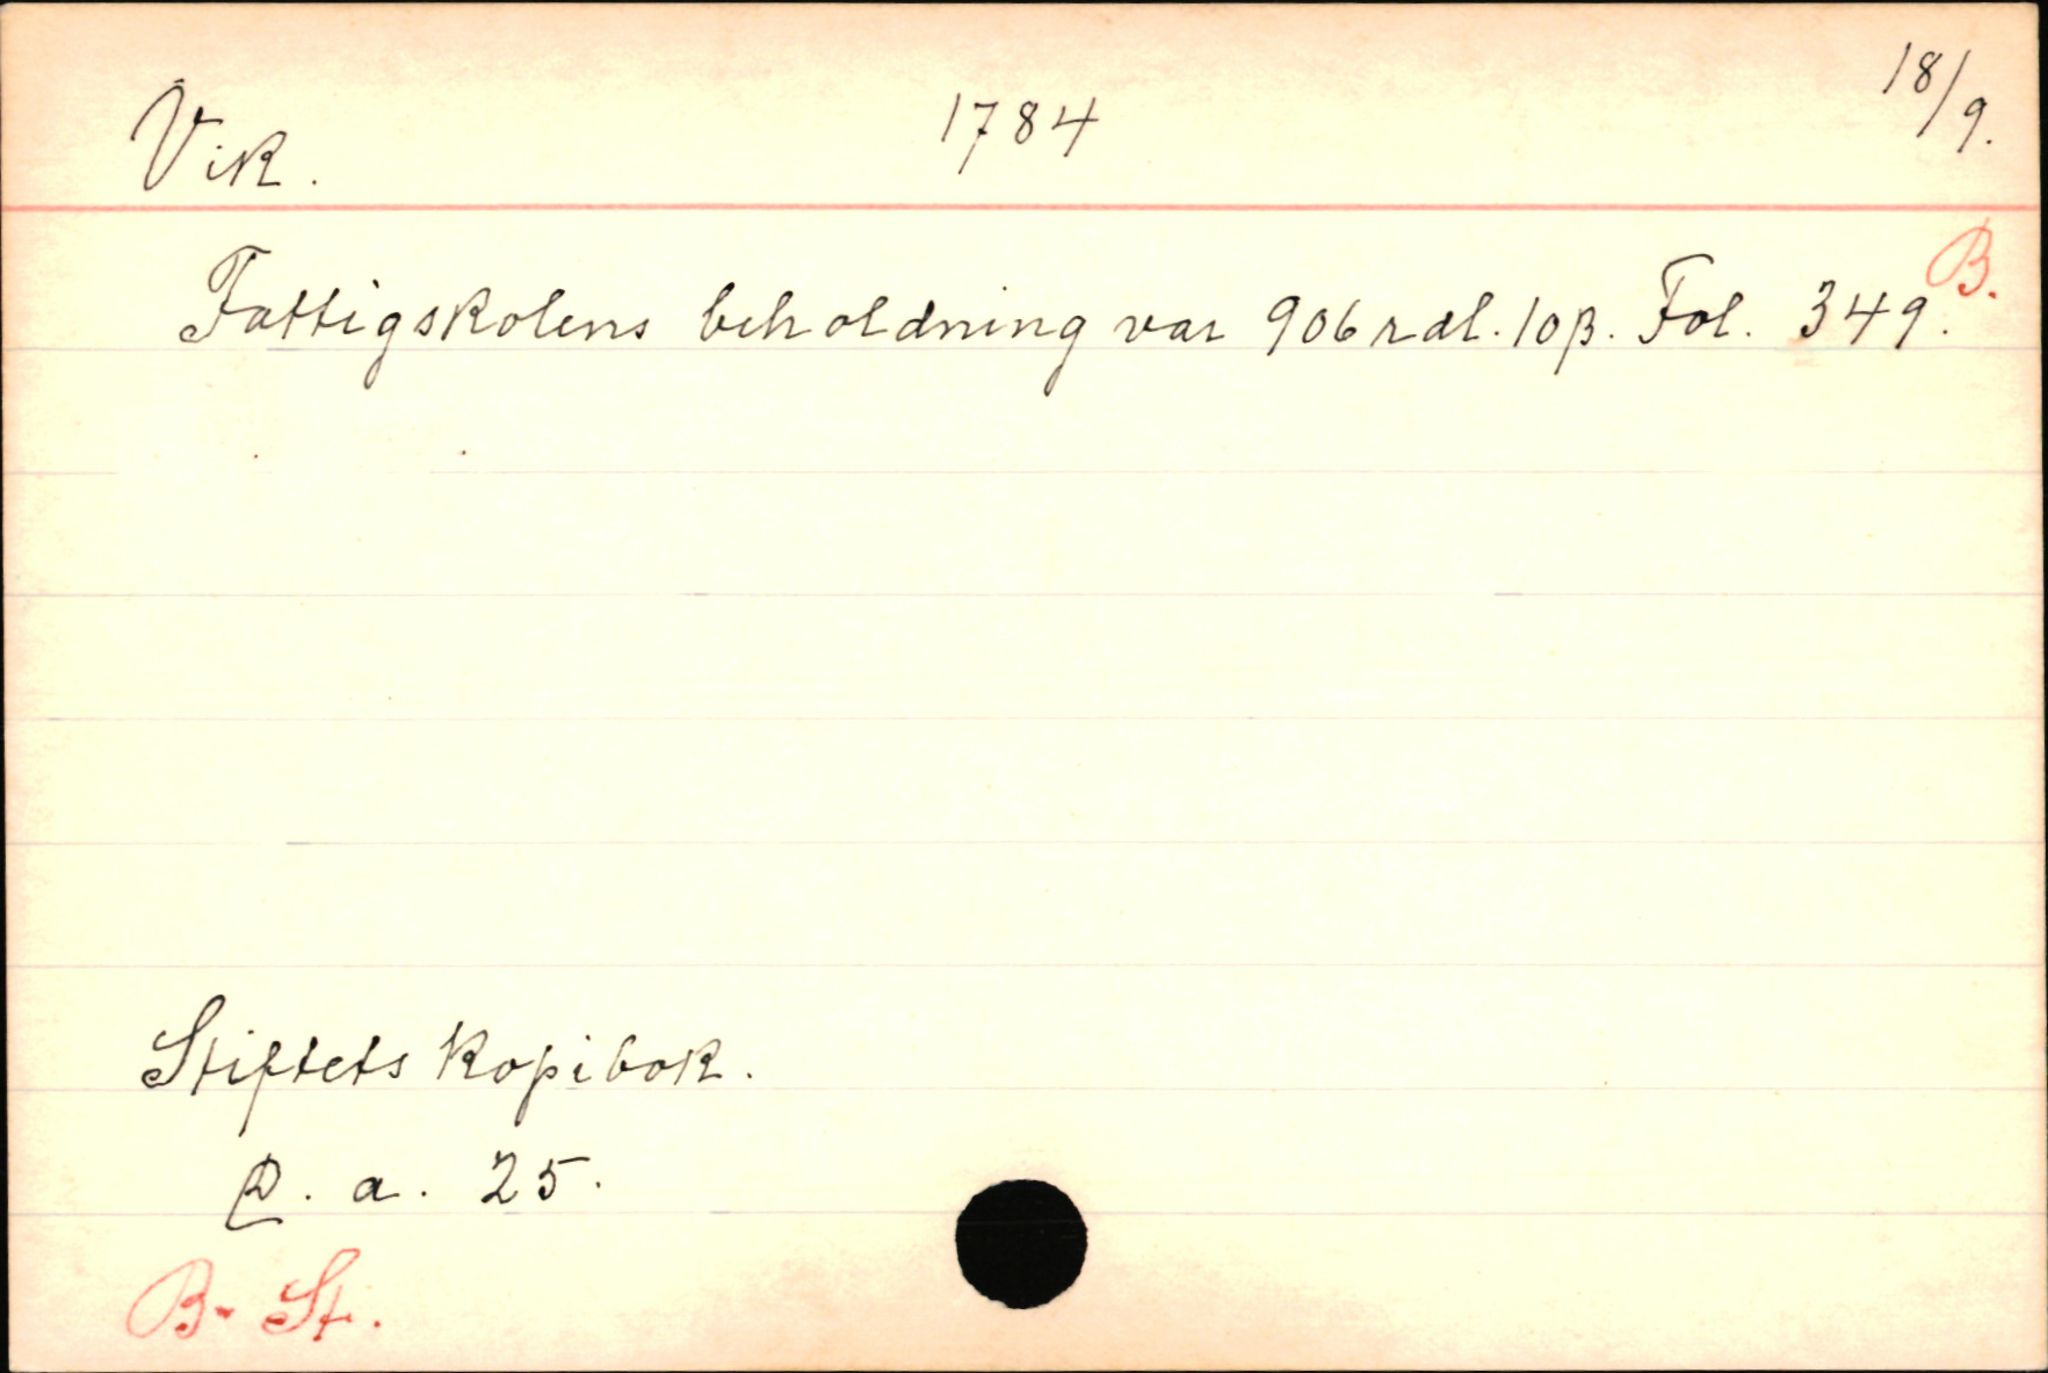 Vik. 1784 18/9.
B.
Fattigskolens beholdning var 906 rdl. 10 β. Fol. 349.
Stiftets kopibok.
a. 25.
B. St.